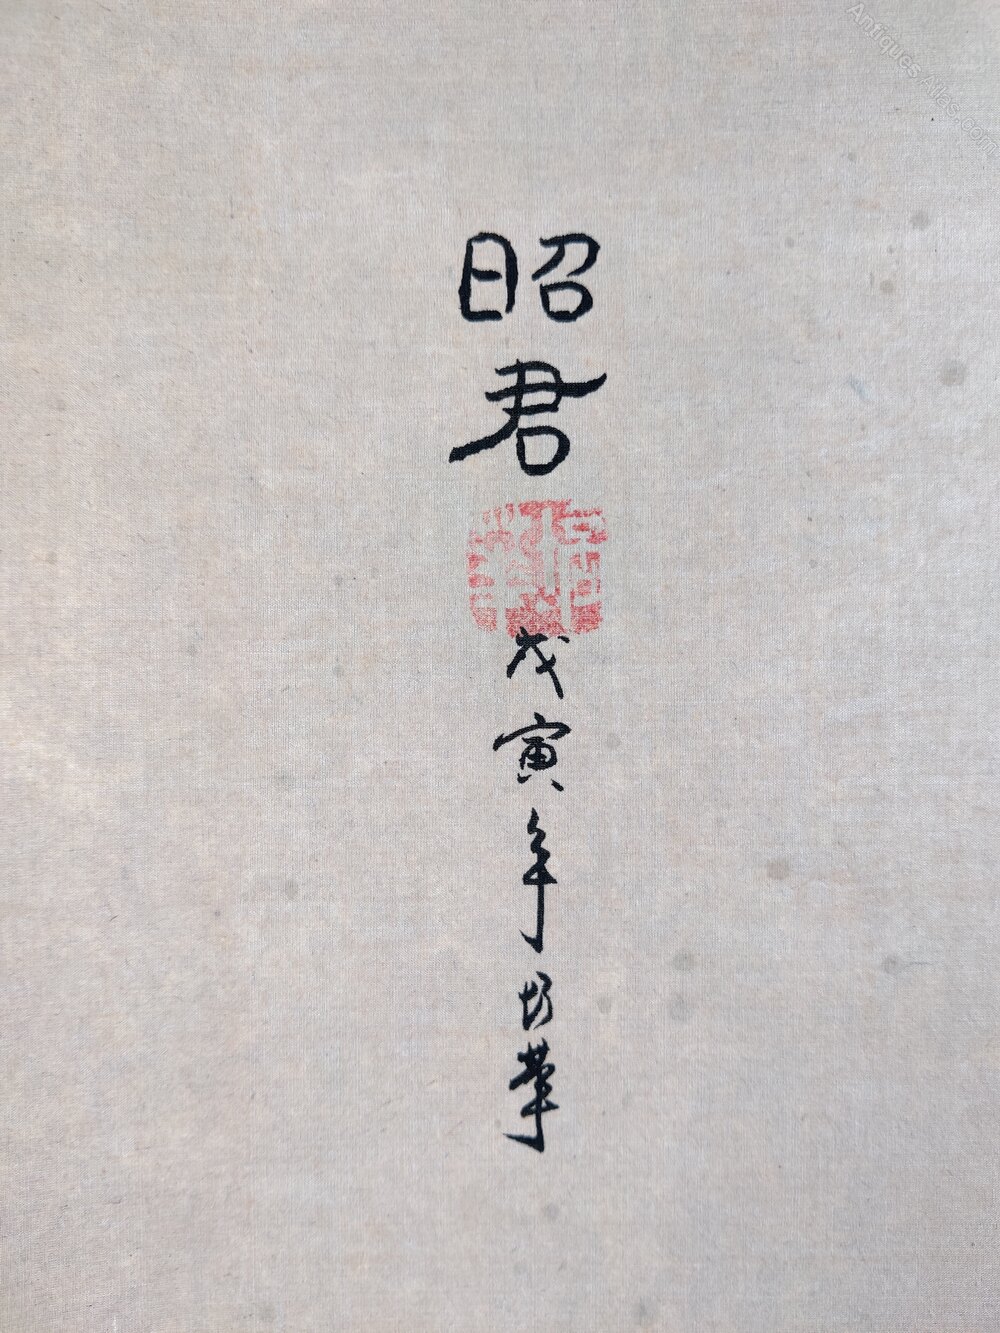 昭君
戊寅年坊筆
Antiques Atlas.com